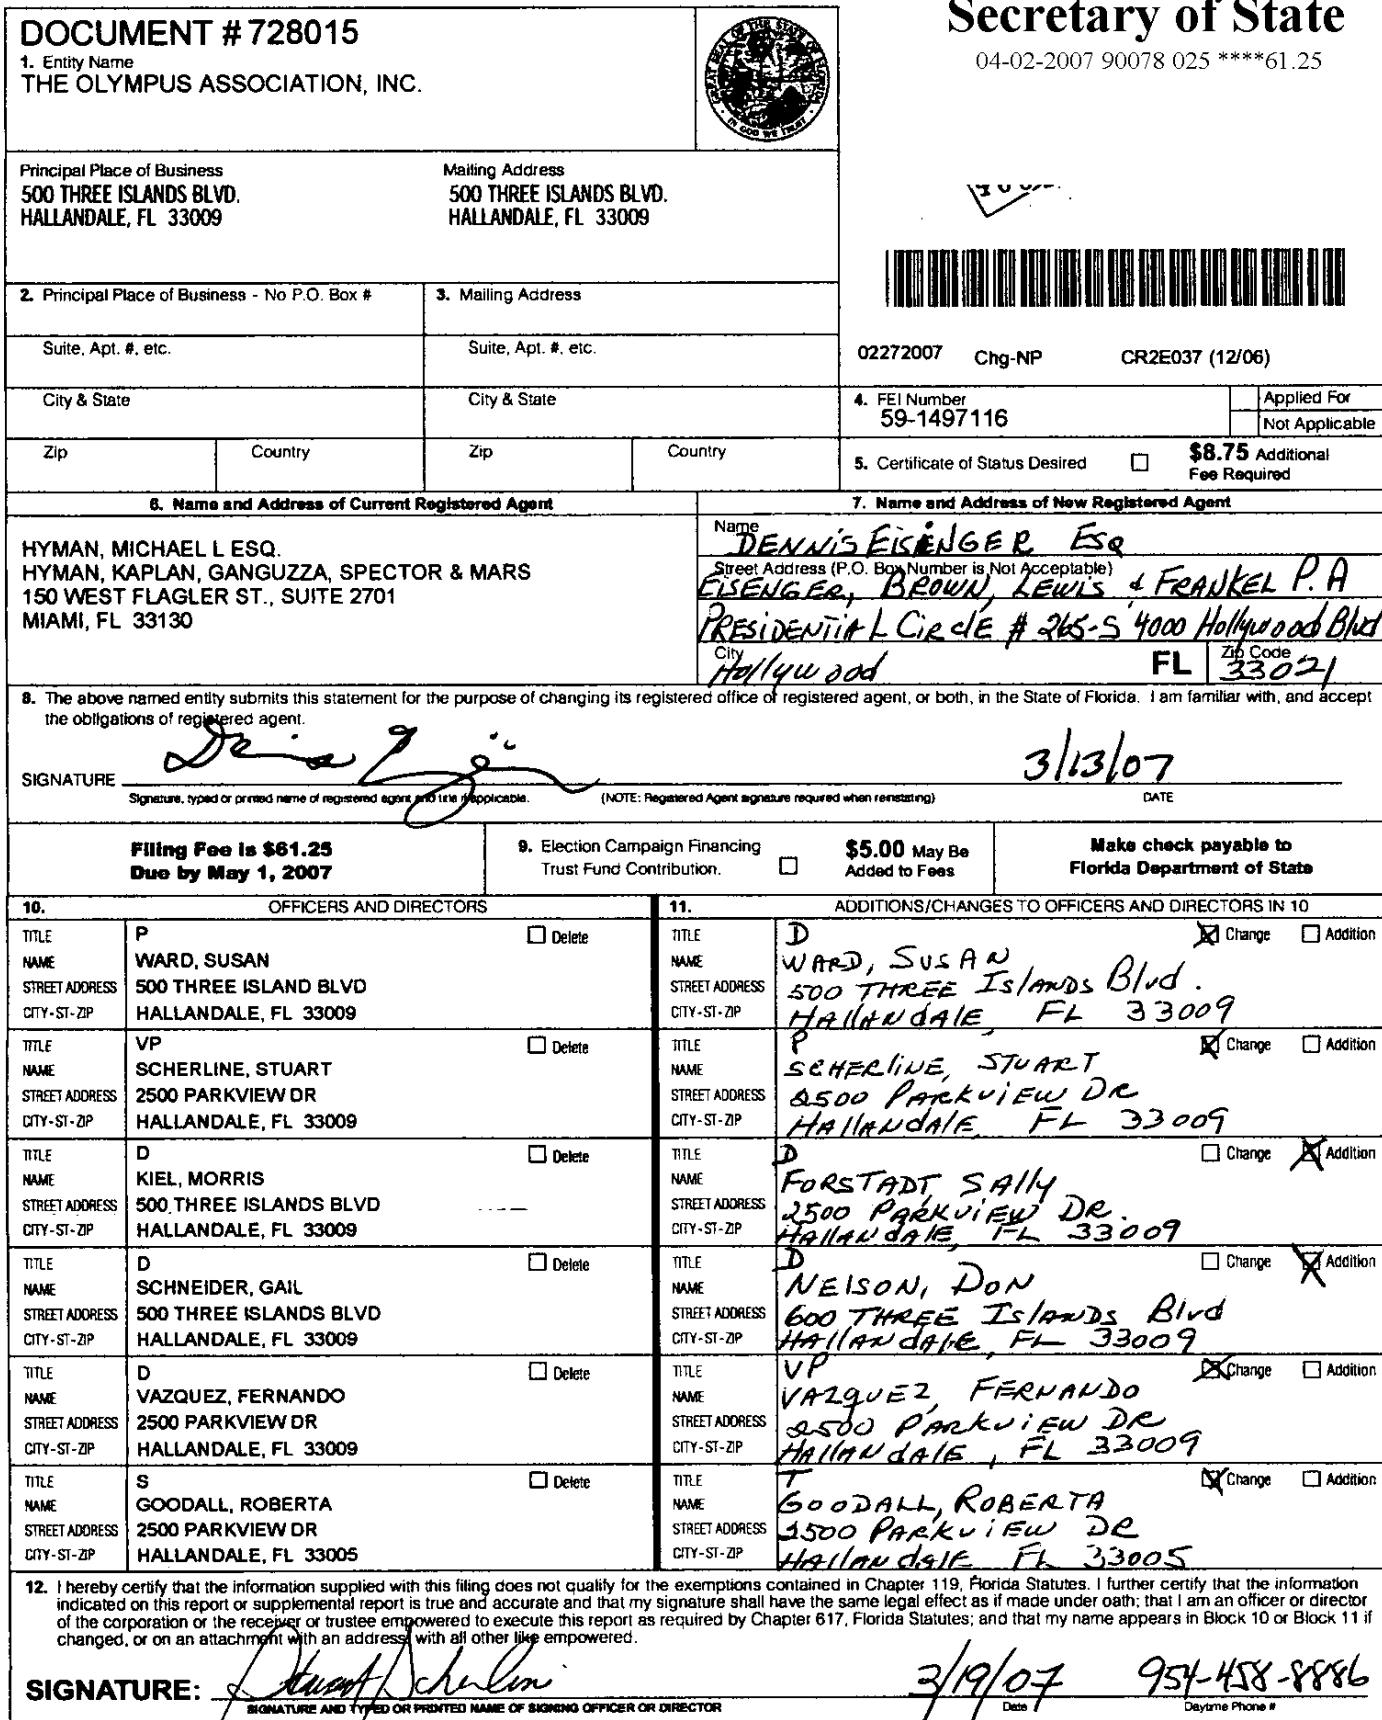 Secretary of State
04-02-2007 90078 025 ****61.25
DOCUMENT # 728015
1. Entity Name
THE OLYMPUS ASSOCIATION, INC.
GREAT SEAL OF THE STATE OF FLORIDA
IN GOD WE TRUST
Principal Place of Business
500 THREE ISLANDS BLVD.
HALLANDALE, FL 33009
Mailing Address
500 THREE ISLANDS BLVD.
HALLANDALE, FL 33009
2. Principal Place of Business - No P.O. Box #
3. Mailing Address
Suite, Apt. #, etc.
Suite, Apt. #, etc.
City & State
City & State
Zip
Country
Zip
Country
02272007 Chg-NP CR2E037 (12/06)
4. FEI Number
59-1497116
Applied For
Not Applicable
5. Certificate of Status Desired
$8.75 Additional
Fee Required
6. Name and Address of Current Registered Agent
HYMAN, MICHAEL L ESQ.
HYMAN, KAPLAN, GANGUZZA, SPECTOR & MARS
150 WEST FLAGLER ST., SUITE 2701
MIAMI, FL 33130
7. Name and Address of New Registered Agent
Name
DENNIS EISENGER ESQ
Street Address (P.O. Box Number is Not Acceptable)
EISENGER, BROWN, LEWIS & FRANKEL P.A
PRESIDENTIAL CircLE # 265-S 4000 Hollywood Blvd
City
Hollywood
FL
Zip Code
33021
8. The above named entity submits this statement for the purpose of changing its registered office or registered agent, or both, in the State of Florida. I am familiar with, and accept
the obligations of registered agent.
SIGNATURE
3/13/07
Signature, typed or printed name of registered agent and title if applicable.
(NOTE: Registered Agent signature required when reinstating)
DATE
Filing Fee is $61.25
Due by May 1, 2007
9. Election Campaign Financing
Trust Fund Contribution.
$5.00 May Be
Added to Fees
Make check payable to
Florida Department of State
10. OFFICERS AND DIRECTORS
TITLE P Delete
NAME WARD, SUSAN
STREET ADDRESS 500 THREE ISLAND BLVD
CITY-ST-ZIP HALLANDALE, FL 33009
TITLE VP Delete
NAME SCHERLINE, STUART
STREET ADDRESS 2500 PARKVIEW DR
CITY-ST-ZIP HALLANDALE, FL 33009
TITLE D Delete
NAME KIEL, MORRIS
STREET ADDRESS 500 THREE ISLANDS BLVD
CITY-ST-ZIP HALLANDALE, FL 33009
TITLE D Delete
NAME SCHNEIDER, GAIL
STREET ADDRESS 500 THREE ISLANDS BLVD
CITY-ST-ZIP HALLANDALE, FL 33009
TITLE D Delete
NAME VAZQUEZ, FERNANDO
STREET ADDRESS 2500 PARKVIEW DR
CITY-ST-ZIP HALLANDALE, FL 33009
TITLE S Delete
NAME GOODALL, ROBERTA
STREET ADDRESS 2500 PARKVIEW DR
CITY-ST-ZIP HALLANDALE, FL 33005
11. ADDITIONS/CHANGES TO OFFICERS AND DIRECTORS IN 10
TITLE D Change Addition
NAME WARD, SUSAN
STREET ADDRESS 500 THREE Islands Blvd.
CITY-ST-ZIP HAllANdAlE, FL 33009
TITLE P Change Addition
NAME SCHERliNE, STUART
STREET ADDRESS 2500 PARKViEW DR
CITY-ST-ZIP HAllANdAlE, FL 33009
TITLE D Change Addition
NAME FORSTADT, SAlly
STREET ADDRESS 2500 PARKViEW DR.
CITY-ST-ZIP HAllANdAlE, FL 33009
TITLE D Change Addition
NAME NElSON, DON
STREET ADDRESS 600 THREE IslANDS Blvd
CITY-ST-ZIP HAllANdAlE, FL 33009
TITLE VP Change Addition
NAME VAZQUEZ, FERNANDO
STREET ADDRESS 2500 PARKViEW DR
CITY-ST-ZIP HAllANdAlE, FL 33009
TITLE T Change Addition
NAME GOODALL, ROBERTA
STREET ADDRESS 2500 PARKViEW DR
CITY-ST-ZIP HAllANdAlE FL 33005
12. I hereby certify that the information supplied with this filing does not qualify for the exemptions contained in Chapter 119, Florida Statutes. I further certify that the information
indicated on this report or supplemental report is true and accurate and that my signature shall have the same legal effect as if made under oath; that I am an officer or director
of the corporation or the receiver or trustee empowered to execute this report as required by Chapter 617, Florida Statutes; and that my name appears in Block 10 or Block 11 if
changed, or on an attachment with an address, with all other like empowered.
SIGNATURE: Stuart Scherline 3/19/07 954-458-8886
SIGNATURE AND TYPED OR PRINTED NAME OF SIGNING OFFICER OR DIRECTOR Date Daytime Phone #